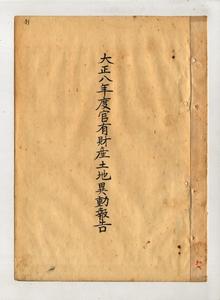 大正八年度官有財産土地異動報告